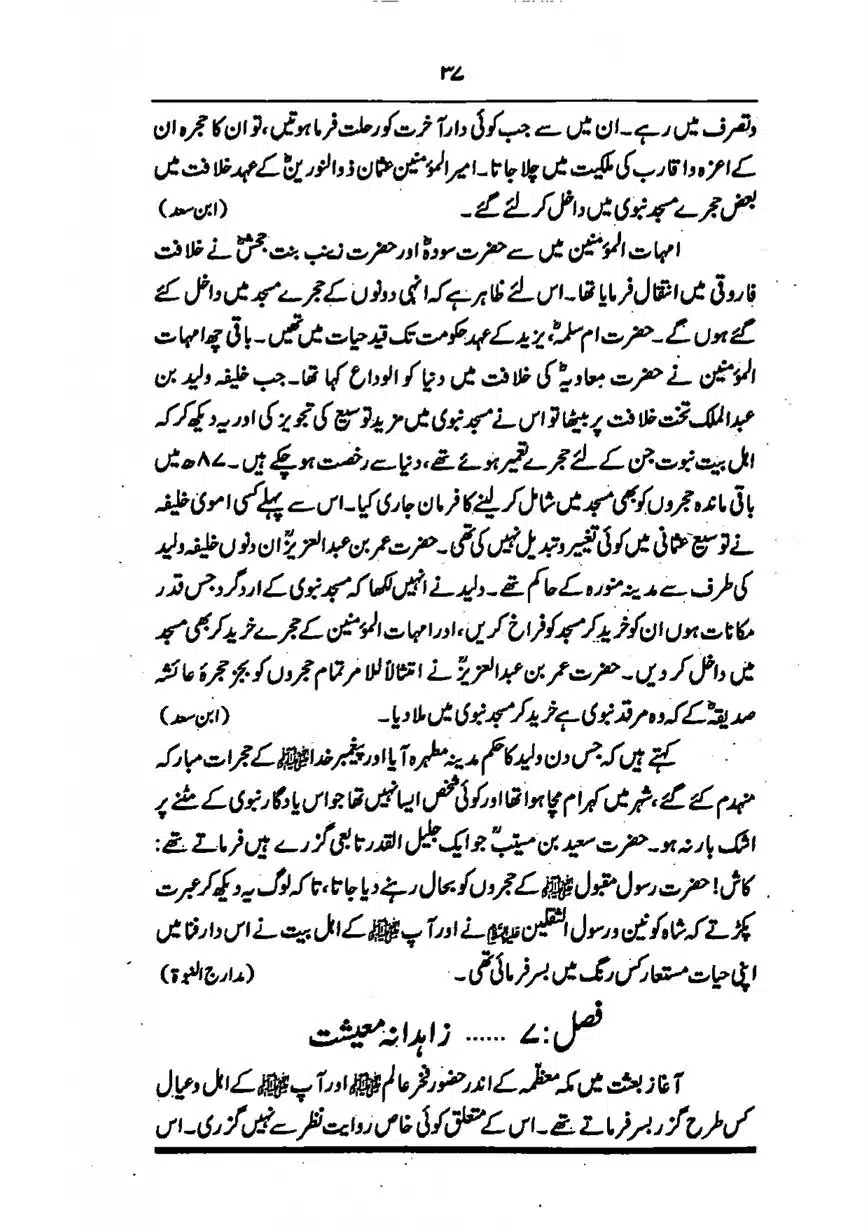 ۳۷
وتصرف میں رہے۔ ان میں سے جب کوئی دار آخرت کو رحلت فرما ہوتیں، تو ان کا حجرہ ان
کے اعزہ و اقارب کی ملکیت میں چلا جاتا۔ امیر المؤمنین عثمان ذوالنورینؓ کے عہد خلافت میں
بعض حجرے مسجد نبوی میں داخل کر لئے گئے۔ (ابن سعد)
امہات المؤمنین میں سے حضرت سودہؓ اور حضرت زینب بنت جحشؓ نے خلافت
فاروقی میں انتقال فرمایا تھا۔ اس لئے ظاہر ہے کہ انہی دونوں کے حجرے مسجد میں داخل کئے
گئے ہوں گے۔ حضرت ام سلمہؓ، یزید کے عہد حکومت تک قید حیات میں تھیں۔ باقی چھ امہات
المؤمنین نے حضرت معاویہؓ کی خلافت میں دنیا کو الوداع کہا تھا۔ جب خلیفہ ولید بن
عبدالملک تخت خلافت پر بیٹھا تو اس نے مسجد نبوی میں مزید توسیع کی تجویز کی اور یہ دیکھ کر کہ
اہل بیت نبوت جن کے لئے حجرے تعمیر ہوئے تھے، دنیا سے رخصت ہو چکے ہیں۔ ۸۷ھ میں
باقی ماندہ حجروں کو بھی مسجد میں شامل کر لینے کا فرمان جاری کیا۔ اس سے پہلے کسی اموی خلیفہ
نے توسیع عثمانی میں کوئی تغییر و تبدیل نہیں کی تھی۔ حضرت عمر بن عبدالعزیزؒ ان دنوں خلیفہ ولید
کی طرف سے مدینہ منورہ کے حاکم تھے۔ ولید نے انہیں لکھا کہ مسجد نبوی کے اردگرد جس قدر
مکانات ہوں ان کو خرید کر مسجد کو فراخ کریں، اور امہات المؤمنین کے حجرے خرید کر بھی مسجد
میں داخل کر دیں۔ حضرت عمر بن عبدالعزیزؒ نے امتثالاً للامر تمام حجروں کو بجز حجرۂ عائشہ
صدیقہؓ کے کہ وہ مرقد نبوی ہے خرید کر مسجد نبوی میں ملا دیا۔ (ابن سعد)
کہتے ہیں کہ جس دن ولید کا حکم مدینہ مطہرہ آیا اور پیغمبر خداﷺ کے حجرات مبارکہ
منہدم کئے گئے، شہر میں کہرام مچا ہوا تھا اور کوئی شخص ایسا نہیں تھا جو اس یادگار نبوی کے مٹنے پر
اشک بار نہ ہو۔ حضرت سعید بن مسیبؒ جو ایک جلیل القدر تابعی گزرے ہیں فرماتے تھے:
کاش! حضرت رسول مقبولﷺ کے حجروں کو بحال رہنے دیا جاتا، تاکہ لوگ یہ دیکھ کر عبرت
پکڑتے کہ شاہ کونین و رسول الثقلین نے اور آپﷺ کے اہل بیت نے اس دار فنا میں
اپنی حیات مستعار کس رنگ میں بسر فرمائی تھی۔ (مدارج النبوۃ)
فصل: ۷ ...... زاہدانہ معیشت
آغاز بعثت میں مکہ معظمہ کے اندر حضور فخر عالمﷺ اور آپﷺ کے اہل و عیال
کس طرح گزر بسر فرماتے تھے۔ اس کے متعلق کوئی خاص روایت نظر سے نہیں گزری۔ اس